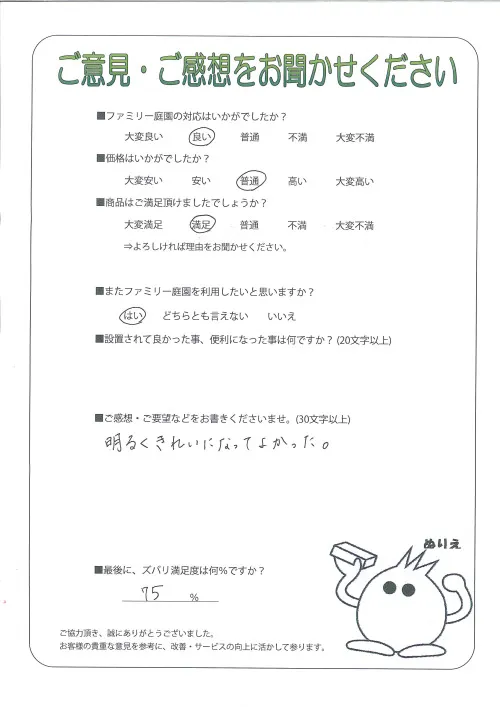 ご意見・ご感想をお聞かせください
■ファミリー庭園の対応はいかがでしたか？
大変良い 良い 普通 不満 大変不満
■価格はいかがでしたか？
大変安い 安い 普通 高い 大変高い
■商品はご満足頂けましたでしょうか？
大変満足 満足 普通 不満 大変不満
⇒よろしければ理由をお聞かせください。
■またファミリー庭園を利用したいと思いますか？
はい どちらとも言えない いいえ
■設置されて良かった事、便利になった事は何ですか？(20文字以上)
■ご感想・ご要望などをお書きくださいませ。(30文字以上)
明るくきれいになってよかった。
ぬりえ
■最後に、ズバリ満足度は何％ですか？
75 %
ご協力頂き、誠にありがとうございました。
お客様の貴重な意見を参考に、改善・サービスの向上に活かして参ります。